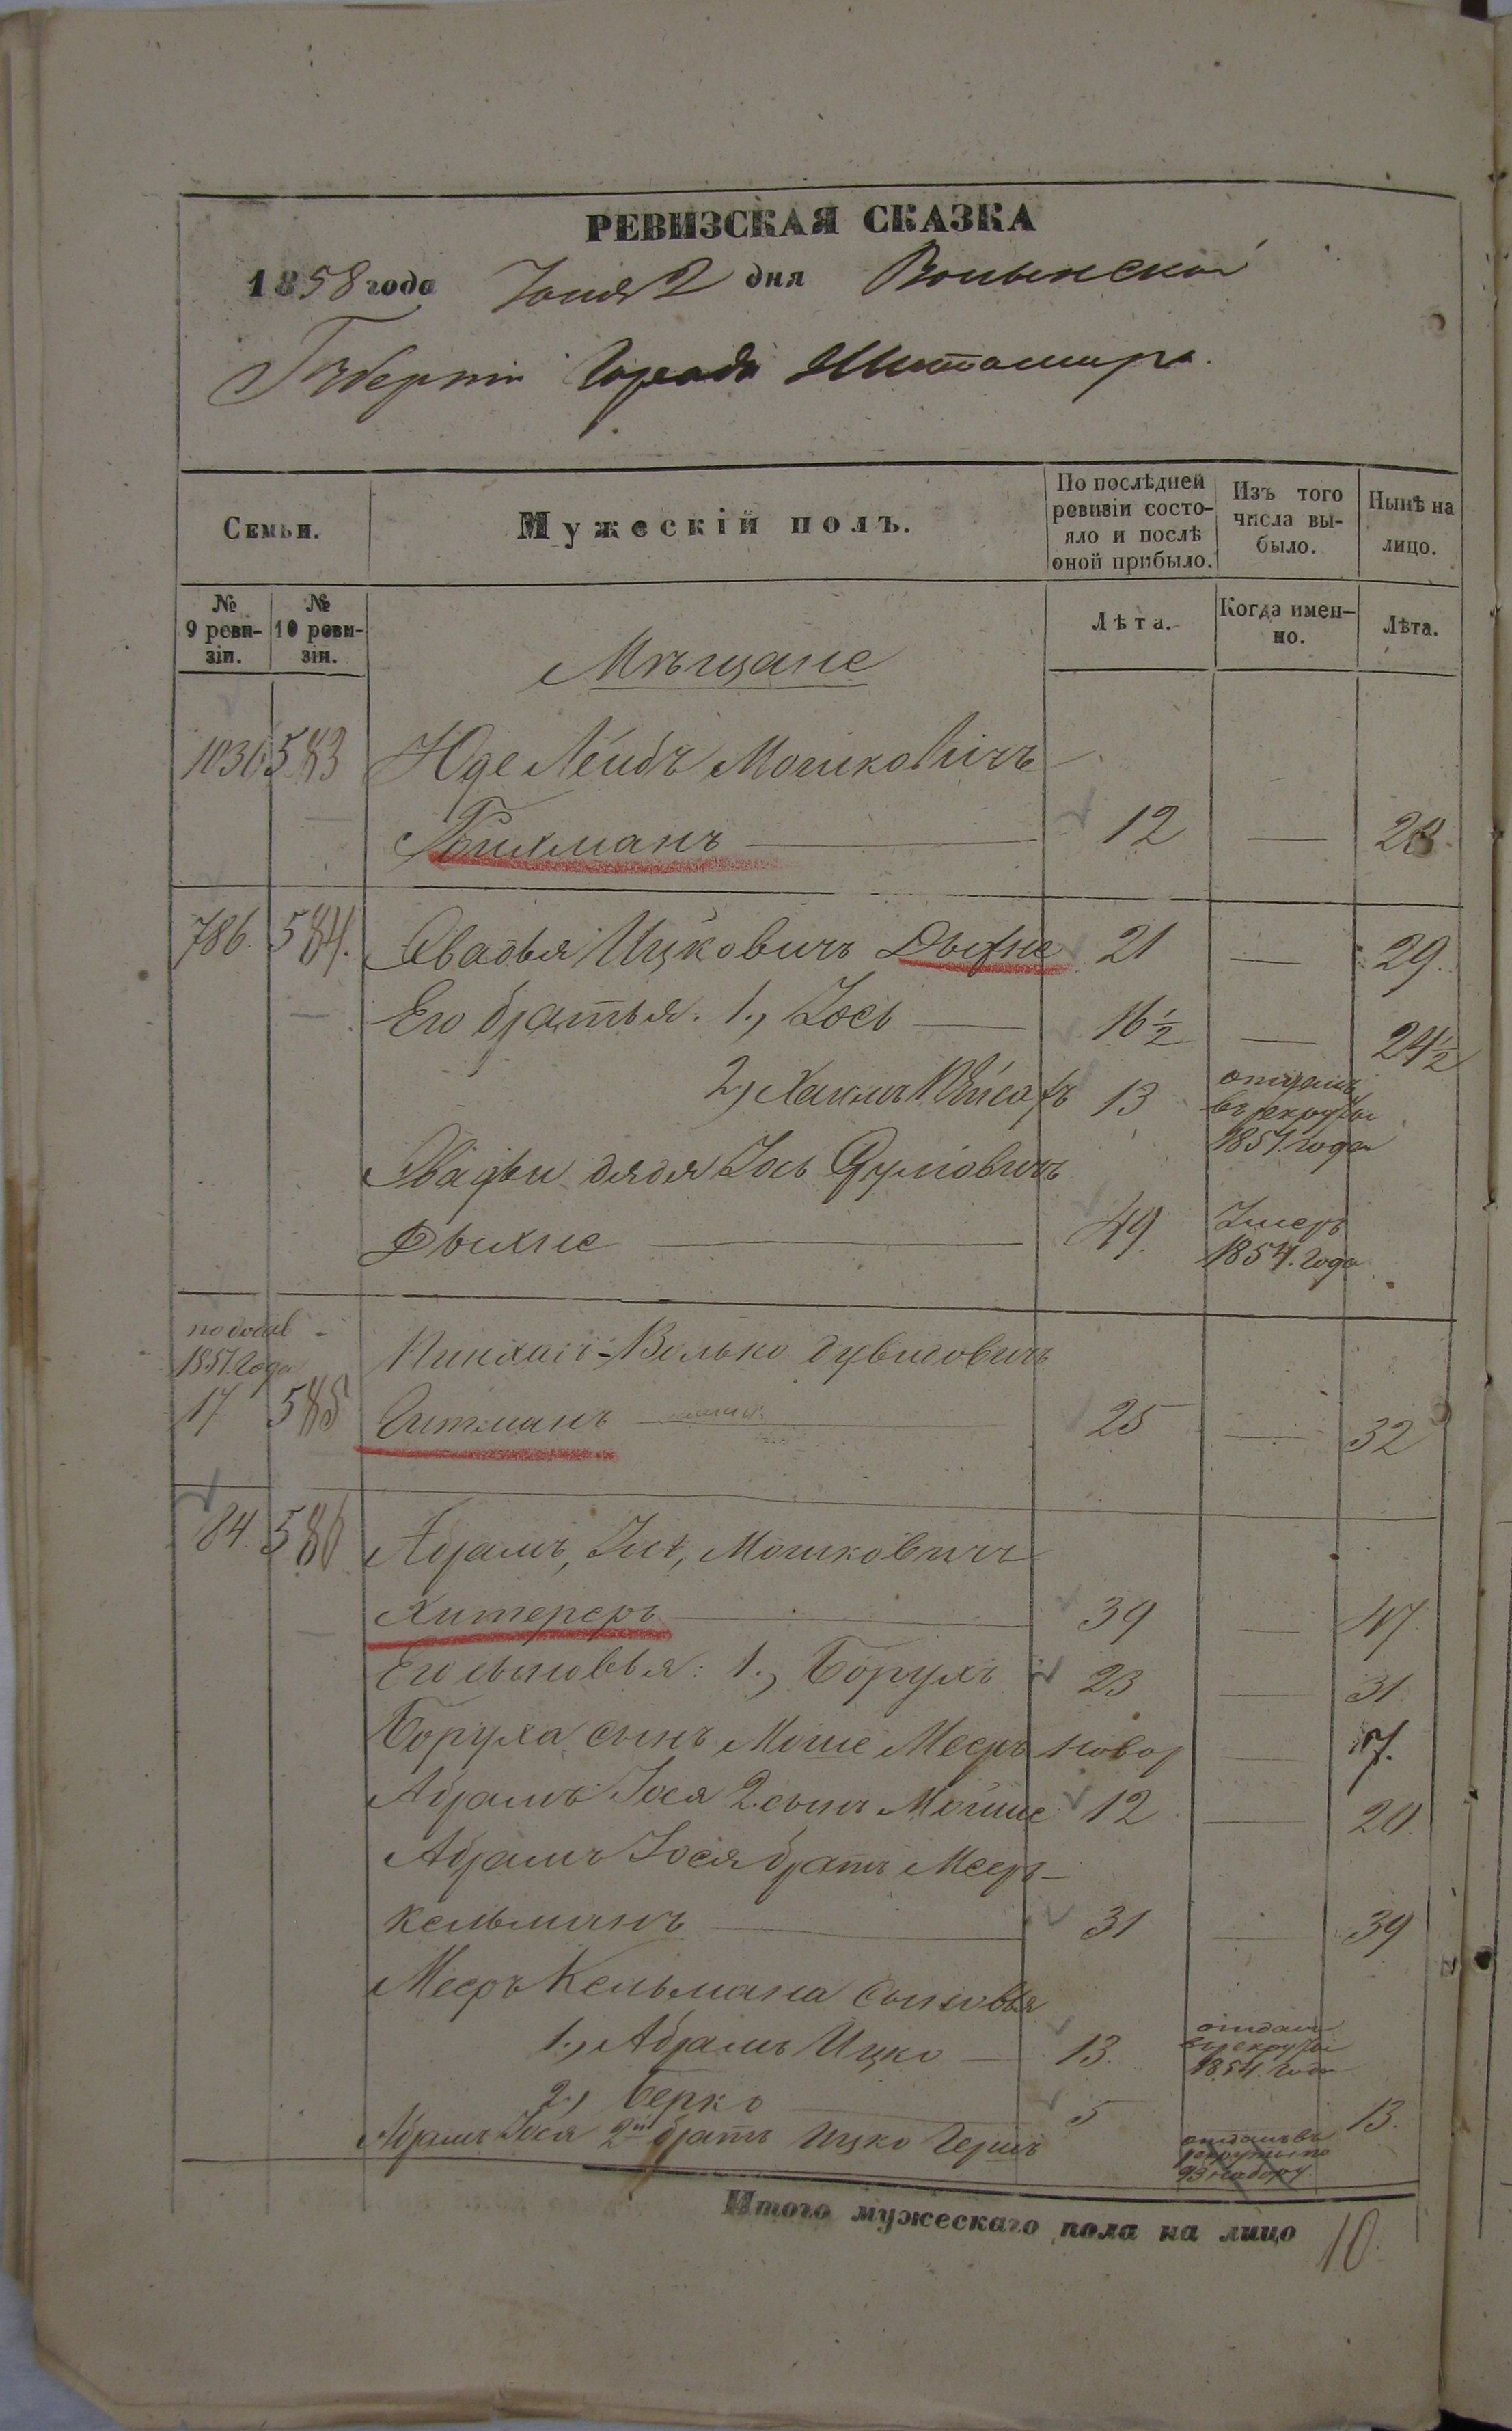 РЕВИЗСКАЯ СКАЗКА
1858 года Іюня 2 дня Волынской
Губерніи Города Житомира.
Семьи.
Мужескій полъ.
По послѣдней ревизіи состояло и послѣ оной прибыло.
Изъ того числа выбыло.
Нынѣ на лицо.
№ 9 ревизіи.
№ 10 ревизіи.
Лѣта.
Когда именно.
Лѣта.
Мѣщане
583 Юде Лейбъ Мошковичъ
12 — 20.
786. 584. Овадья Ицковичъ Дыхне 21 — 29.
Его братья: 1., Іось — 16 1/2 — 24 1/2
2., Хаимъ 13 отданъ въ рекруты 1851 года
дядя Іось
Дыхне — 49. Умеръ 1854. года
1851. года
17 585 Пинхасъ-Волько Гувшовичъ
Гитманъ — 25 — 32
84. 586 Абрамъ, Іось, Мошковичъ
Хитереръ — 39 — 47.
Его сыновья: 1., Борухъ 23 — 31.
Боруха сынъ Моше Мееръ новор — 7.
Абрамъ Іося 2. сынъ Мойше 12. — 20.
Абрамъ Іося братъ Мееръ-
Кельманъ — 31 — 39
Мееръ Кельмана сыновья
1., Абрамъ Ицко — 13. отданъ въ рекруты 1854. года
2., Берко — 5 13.
Абрамъ Іося 2й братъ Ицко Гершъ отданъ въ рекруты по 93 набору.
Итого мужескаго пола на лицо 10.